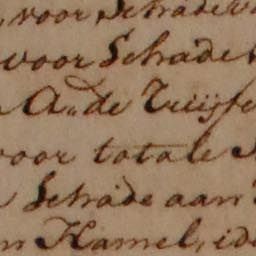 voor Schade
voor Schade
A. de Truijfe
voor totale
Schade aan
Hamel, ide